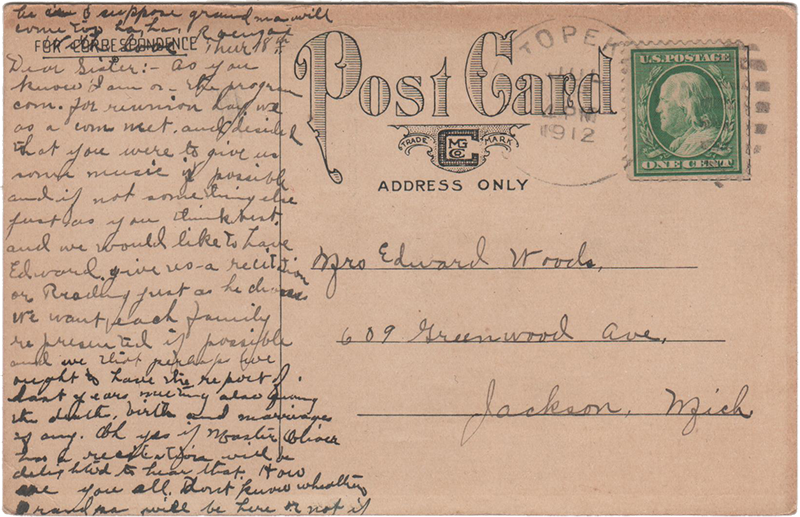 he can & suppose grandma will
come too
FOR CORRESPONDENCE
Thur 18th
Dear Sister:- As you
know I am on the program
com. for reunion day we
as a com met. and decided
that you were to give us
some music if possible
and if not something else
just as you think best.
and we would like to have
Edward give us a recitation
or Reading just as he chooses
We want each family
represented if possible
and we that perhaps we
ought to have the report of
last years meeting also giving
the death, birth and marriages
if any. Oh yes if Master Oliver
has a recitation will be
delighted to hear that. How
are you all. Dont know whether
Grandpa will be here or not if
Post Card
TRADE MARK
MG CO
ADDRESS ONLY
TOPEK
4 PM
1912
U.S. POSTAGE
ONE CENT
Mrs Edward Woods,
609 Greenwood Ave,
Jackson, Mich